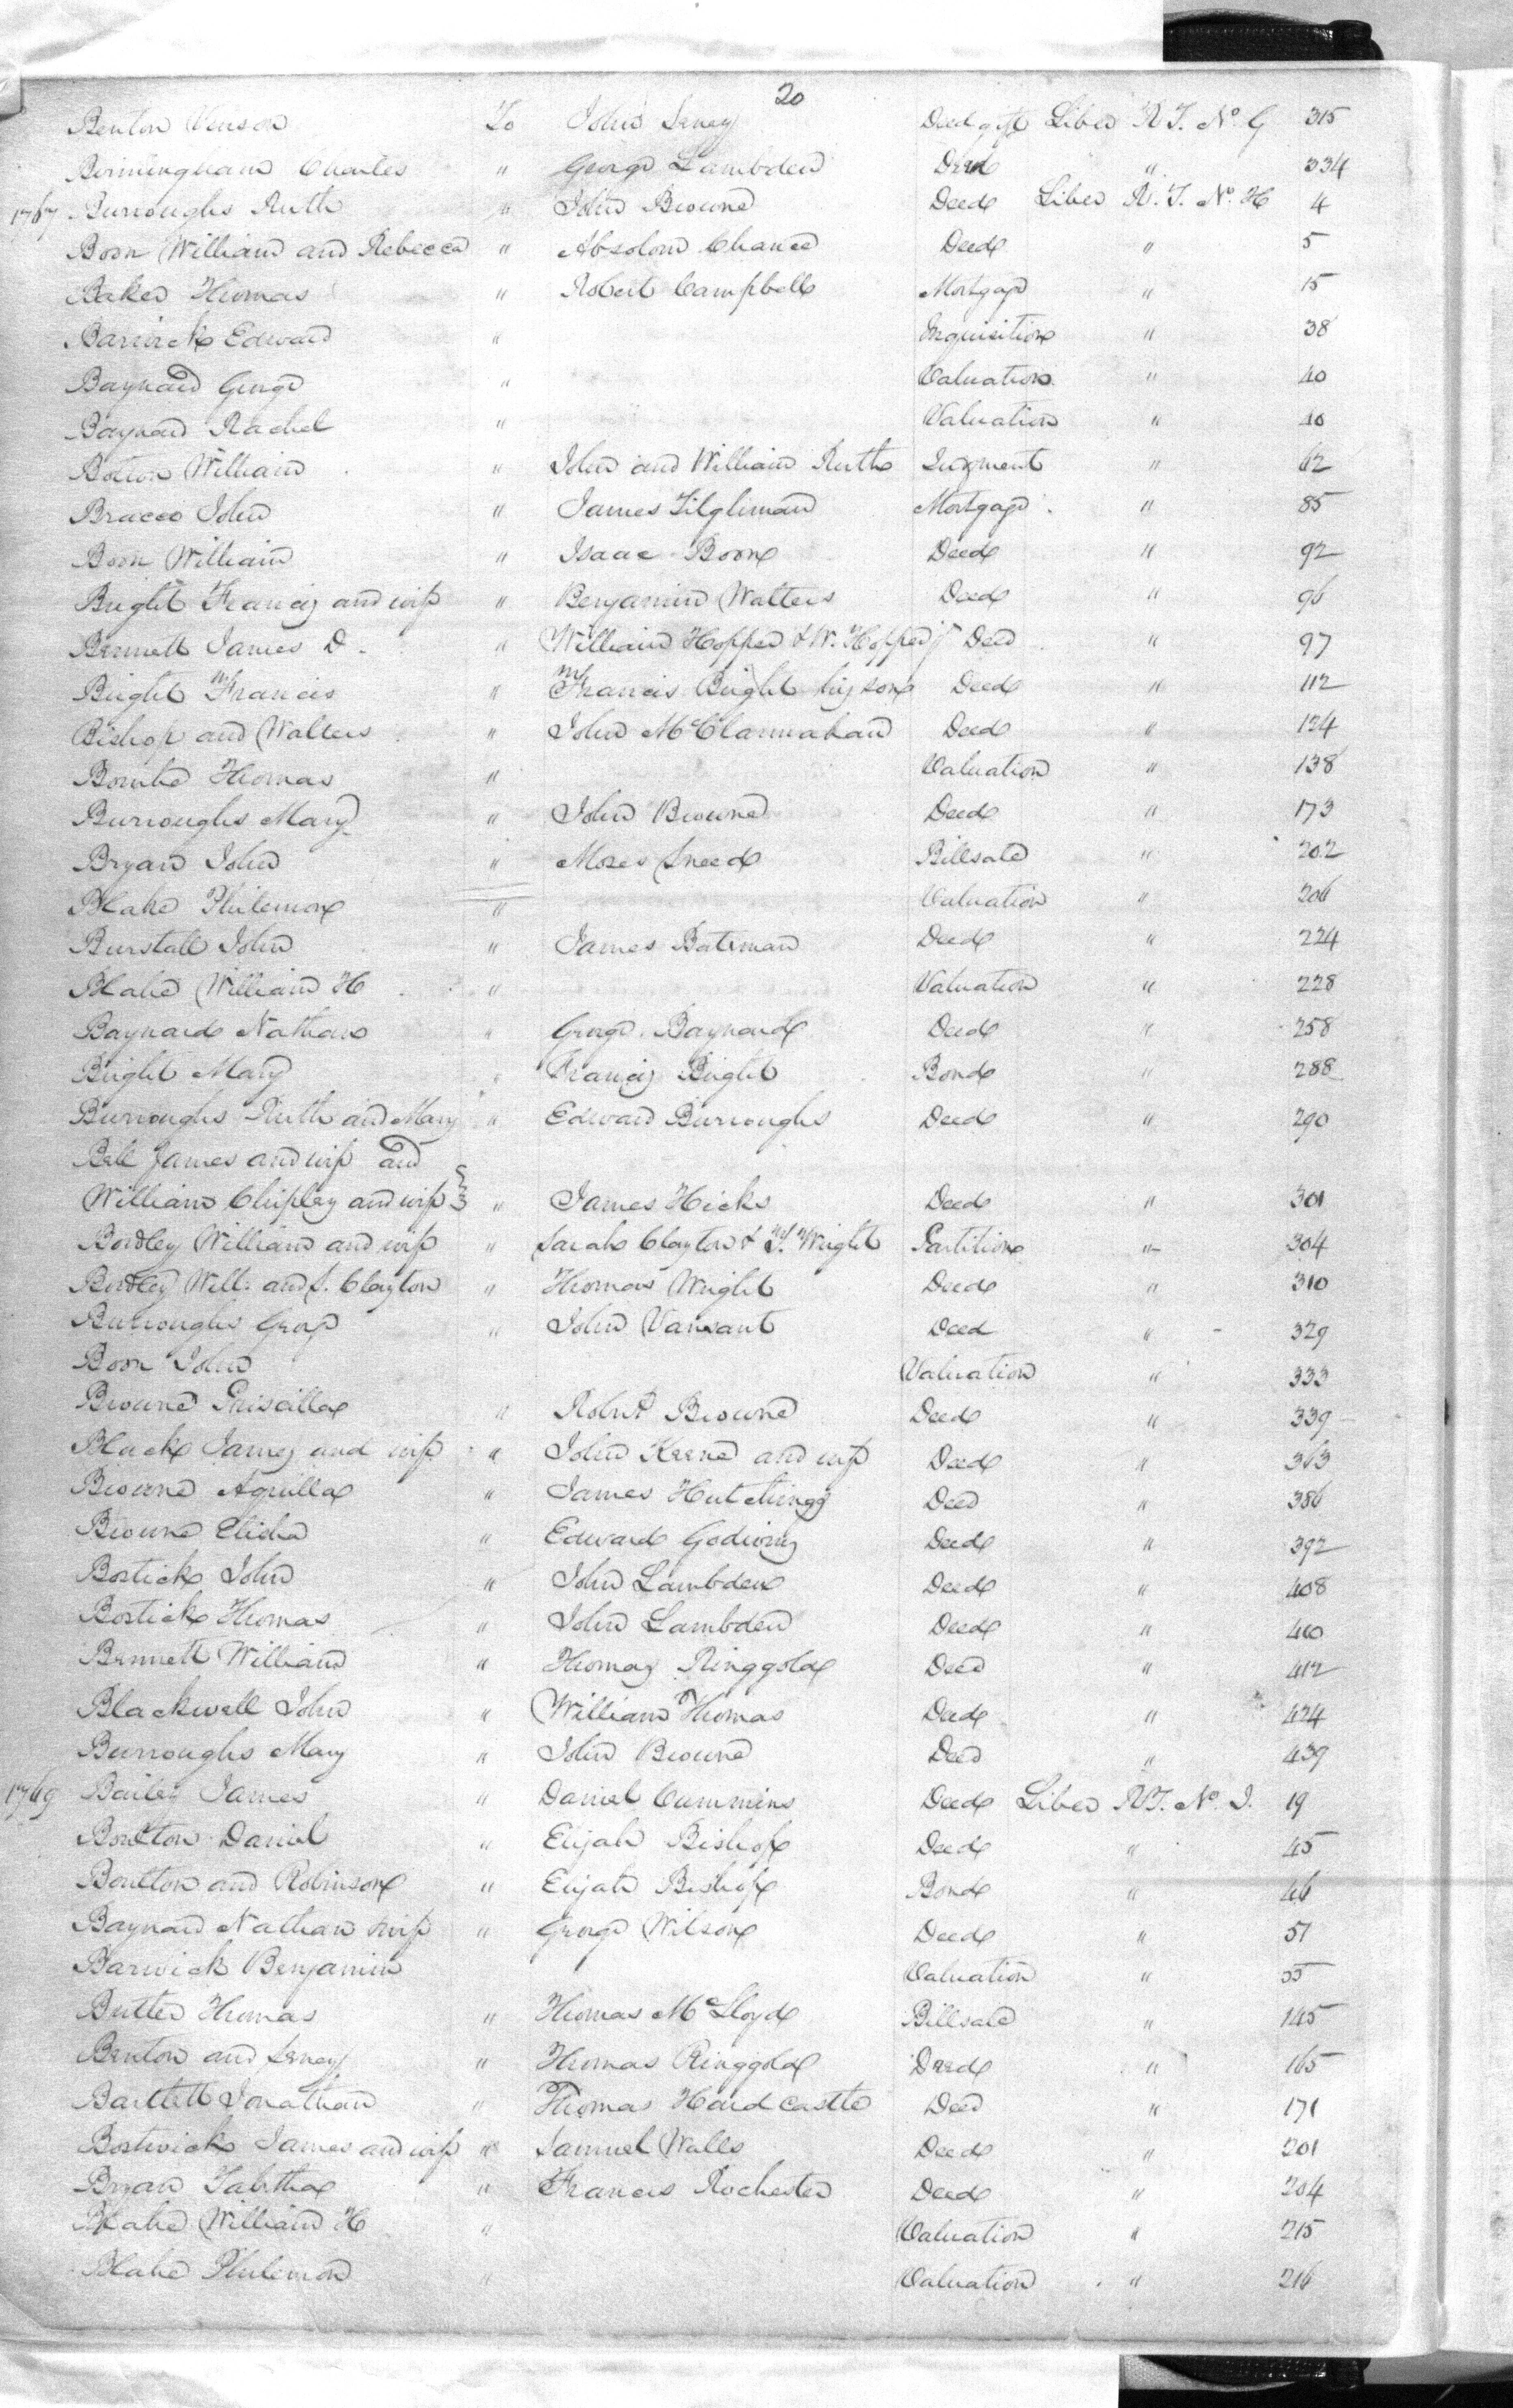 20
Benton Vinson To John Seney Deed gift Liber R T. No. G 315
Birmingham Charles " George Lambden Deed " 334
1767 Burroughs Ruth " John Browne Deed Liber R. T. No. H 4
Boon William and Rebecca " Absolom Chance Deed " 5
Baker Thomas " Robert Campbell Mortgage " 15
Barwick Edward " Inquisition " 38
Baynard George " Valuation " 40
Baynard Rachel " Valuation " 40
Bolton William " John and William Ruth Judgment " 62
Bracco John " James Tilghman Mortgage " 85
Boon William " Isaac Boon Deed " 92
Bright Francis and wife " Benjamin Walters Deed " 96
Bennett James D. " William Hopper & W. Hopper Jr Deed " 97
Bright Francis " Francis Bright his son Deed " 112
Bishop and Walters " John McClannahan Deed " 124
Bombe Thomas " Valuation " 138
Burroughs Mary " John Browne Deed " 173
Bryan John " Moses Sneed Billsale " 202
Blake Philemon " Valuation " 206
Burstall John " James Bateman Deed " 224
Blake William H " Valuation " 228
Baynard Nathan " George Baynard Deed " 258
Bright Mary " Francis Bright Bond " 288
Burroughs Ruth and Mary " Edward Burroughs Deed " 290
Bell James and wife and
William Chipley and wife } " James Hicks Deed " 301
Bordley William and wife " Sarah Clayton & T. Wright Partition " 304
Bordley Will. and S. Clayton " Thomas Wright Deed " 310
Burroughs George " John Vansant Deed " 329
Boon John Valuation " 333
Browne Priscilla " Robert Browne Deed " 339
Black James and wife " John Keene and wife Deed " 363
Browne Aquilla " James Hutchings Deed " 386
Browne Elisha " Edward Godwin Deed " 392
Bostick John " John Lambden Deed " 408
Bostick Thomas " John Lambden Deed " 410
Bennett William " Thomas Ringgold Deed " 412
Blackwell John " William Thomas Deed " 424
Burroughs Mary " John Browne Deed " 439
1769 Bailey James " Daniel Cummins Deed Liber RT. No. I. 19
Boulton Daniel " Elijah Bishop Deed " 45
Boulton and Robinson " Elijah Bishop Bond " 46
Baynard Nathan & wife " George Wilson Deed " 51
Barwick Benjamin Valuation " 55
Butler Thomas " Thomas McLloyd Billsale " 145
Benton and Seney " Thomas Ringgold Deed " 165
Bartlett Jonathan " Thomas Hardcastle Deed " 171
Bostwick James and wife " Samuel Walls Deed " 201
Bryan Tabitha " Francis Rochester Deed " 204
Blake William H " Valuation " 215
Blake Philemon " Valuation " 216